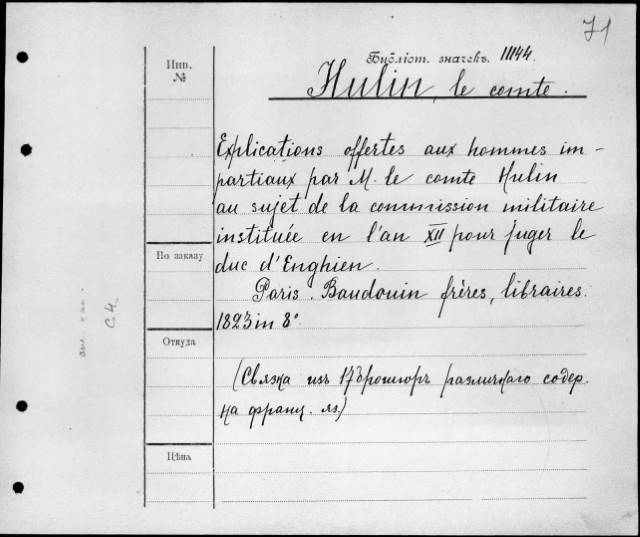 71
Инв.
№
Библіот. значекъ. 11144.
Hulin, le comte.
Explications offertes aux hommes im-
partiaux par M. le comte Hulin
au sujet de la commission militaire
instituée en l'an XII pour juger le
duc d'Enghien.
По заказу
Paris. Baudouin frères, libraires.
1823 in 8°
C 4
Откуда
(Связка изъ 17 брошюръ различнаго содер.
на франц. яз.)
Цѣна